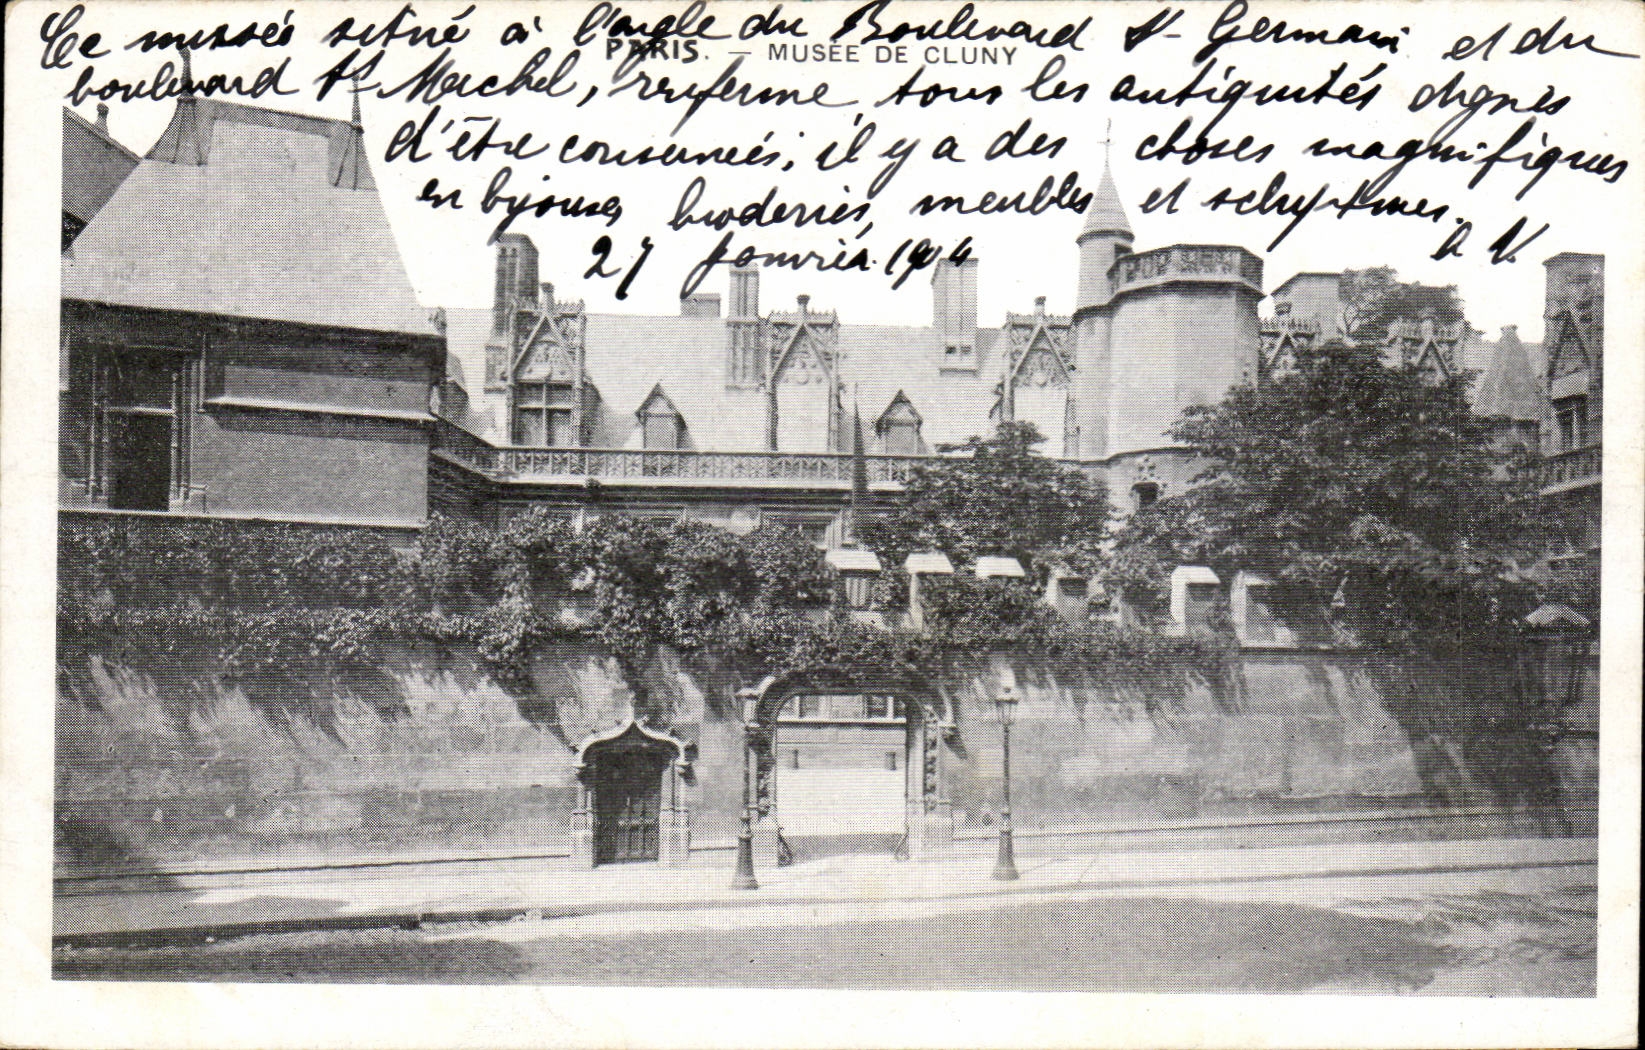 Ce musée situé à l'angle du Boulevard St Germain et du
PARIS. — MUSÉE DE CLUNY
boulevard St Michel, renferme tous les antiquités dignes
d'être conservées, il y a des choses magnifiques
en bijoux, broderies, meubles et sculptures.
27 Janvier 1904
A V.